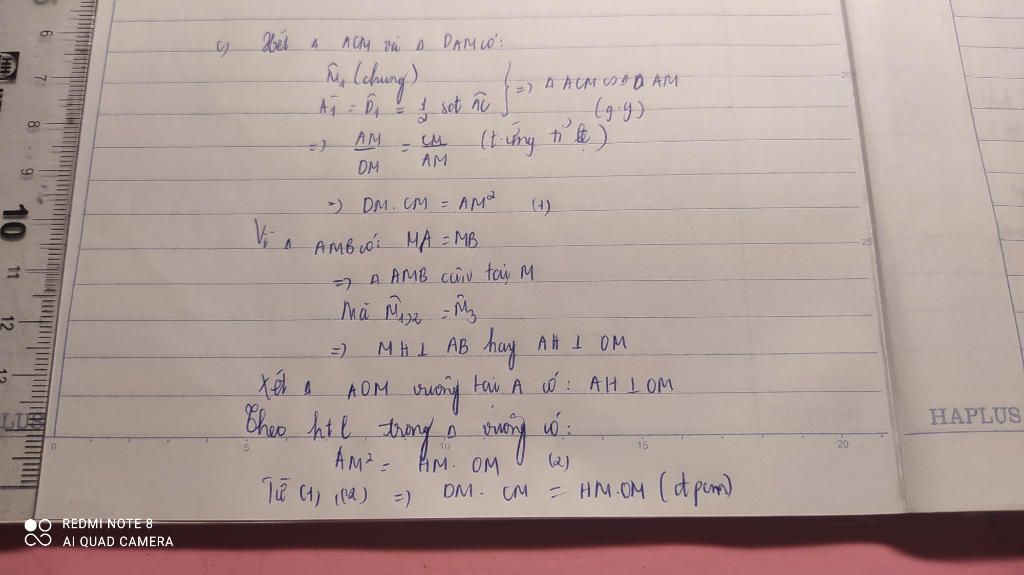 c) Xét Δ ACM và Δ DAM có:
M̂₁ (chung)
Â₁ = D̂₁ = 1/2 sđt AC } => Δ ACM ∽ Δ DAM
(g.g)
=> AM/DM = CM/AM (t.ứng tỉ lệ)
=> DM. CM = AM² (1)
Vì Δ AMB có: MA = MB
=> Δ AMB cân tại M
Mà M̂₁,₂ = M̂₃
=> MH ⊥ AB hay AH ⊥ OM
Xét Δ AOM vuông tại A có: AH ⊥ OM
Theo htl trong Δ vuông có:
AM² = HM. OM (2)
Từ (1), (2) => DM. CM = HM.OM (đpcm)
6
7
10
11
12
20
25
0
5
10
15
20
HAPLUS
REDMI NOTE 8
AI QUAD CAMERA